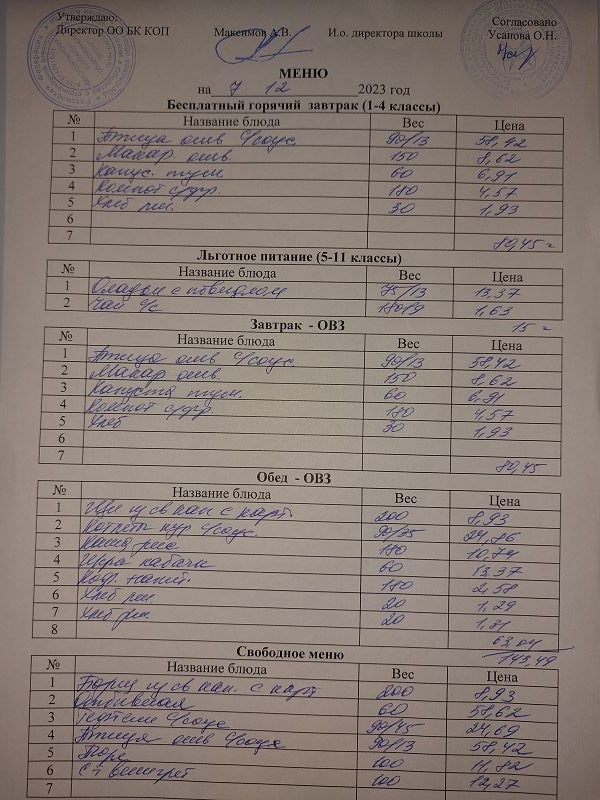 Утверждаю:
Директор ОО БК КОП Максимов А.В. И.о. директора школы
Согласовано
Усанова О.Н.
МЕНЮ
на 7 12 2023 год
Бесплатный горячий завтрак (1-4 классы)
№ Название блюда Вес Цена
1 Птица отв с/соус. 90/13 58,42
2 Макар. отв. 150 8,62
3 Капус. туш 60 6,91
4 Компот с/фр. 180 4,57
5 Хлеб пш. 30 1,93
6
7 80,45
Льготное питание (5-11 классы)
№ Название блюда Вес Цена
1 Оладьи с повидлом 75/13 13,37
2 Чай с/с 180/9 1,63
15
Завтрак - ОВЗ
№ Название блюда Вес Цена
1 Птица отв с/соус. 90/13 58,42
2 Макар отв. 150 8,62
3 Капуста туш. 60 6,91
4 Компот с/фр. 180 4,57
5 Хлеб 30 1,93
6
7 80,45
Обед - ОВЗ
№ Название блюда Вес Цена
1 Щи из св кап с карт. 200 8,93
2 Котлета кур с/соус. 90/35 24,76
3 Каша рис 180 10,74
4 Икра кабачк 60 13,37
5 180 2,58
6 Хлеб пш 20 1,29
7 Хлеб рж. 20 1,31
8 63,04
143,49
Свободное меню
№ Название блюда Вес Цена
1 Борщ из св кап. с карт 200 8,93
2 Отбивная 60 58,62
3 Тефтели с/соус 90/45 24,69
4 Птица отв с/соус 90/13 58,42
5 Пюре 100 11,82
6 С-т винегрет 100 12,27
7